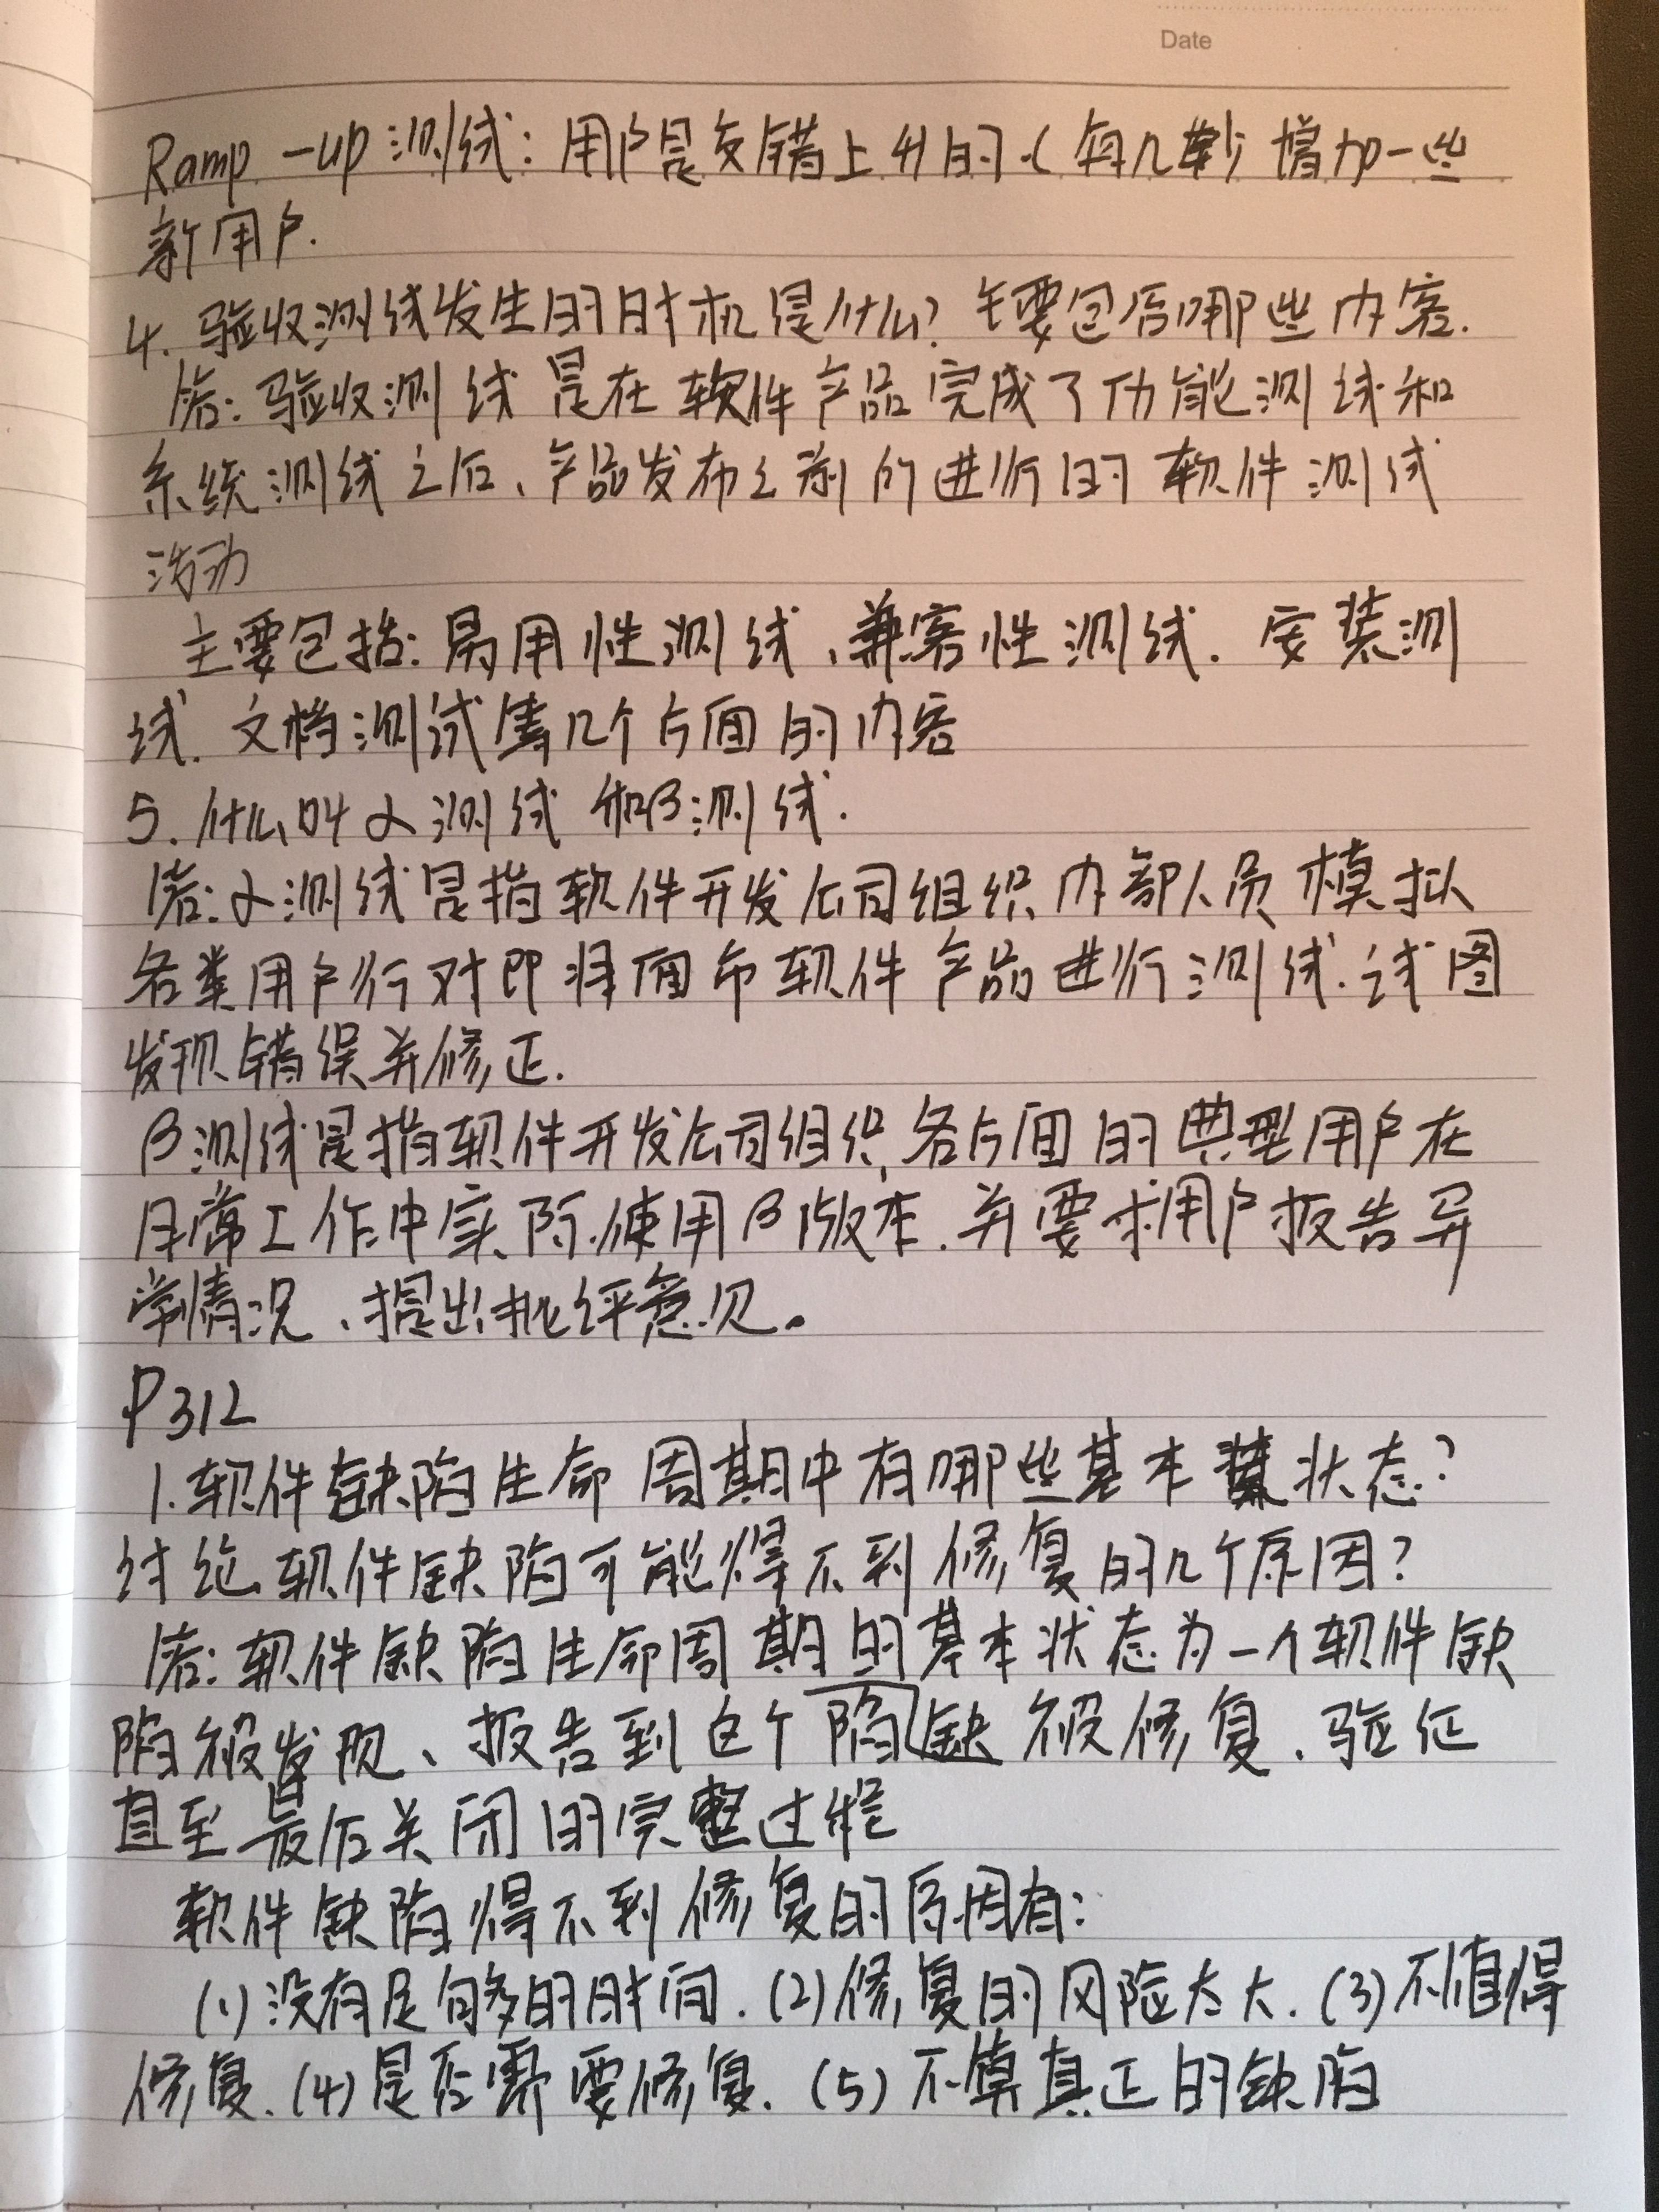 Date
Ramp-up测试：用户是交错上升的（每几秒增加一些
新用户.
4. 验收测试发生的时机是什么？主要包含哪些内容.
答：验收测试是在软件产品完成了功能测试和
系统测试之后、产品发布之前的进行的软件测试
活动
主要包括：易用性测试、兼容性测试. 安装测
试. 文档测试等几个方面的内容
5. 什么叫α测试和β测试.
答：α测试是指软件开发公司组织内部人员模拟
各类用户行对即将面市软件产品进行测试. 试图
发现错误并修正.
β测试是指软件开发公司组织各方面的典型用户在
日常工作中实际使用β版本. 并要求用户报告异
常情况、提出批评意见。
P312
1. 软件缺陷生命周期中有哪些基本状态？
讨论软件缺陷可能得不到修复的几个原因？
答：软件缺陷生命周期的基本状态为一个软件缺
陷被发现、报告到这个陷缺被修复、验证
直至最后关闭的完整过程
软件缺陷得不到修复的原因有：
(1) 没有足够的时间. (2) 修复的风险太大. (3) 不值得
修复. (4) 是否需要修复. (5) 不算真正的缺陷